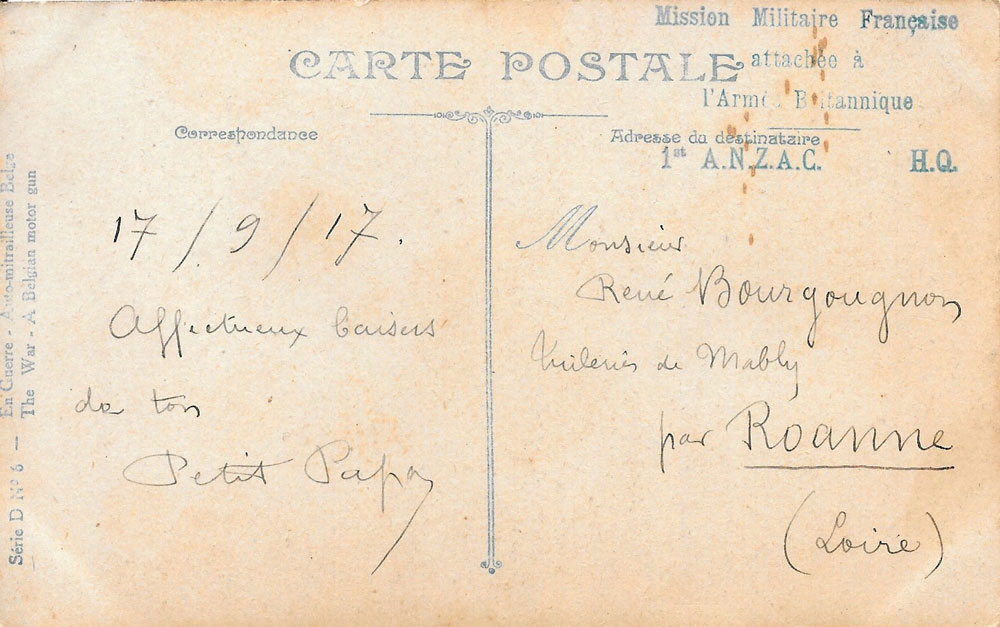 Mission Militaire Française
attachée à
l'Armée Britannique
1st A.N.Z.A.C. H.Q.
CARTE POSTALE
Correspondance
Adresse du destinataire
17/9/17.
Affectueux baisers
de ton
Petit Papa
Monsieur
René Bourgougnon
Tuileries de Mably
par Roanne
(Loire)
Série D Nº 6 — En Guerre - Auto-mitrailleuse Belge
The War - A Belgian motor gun